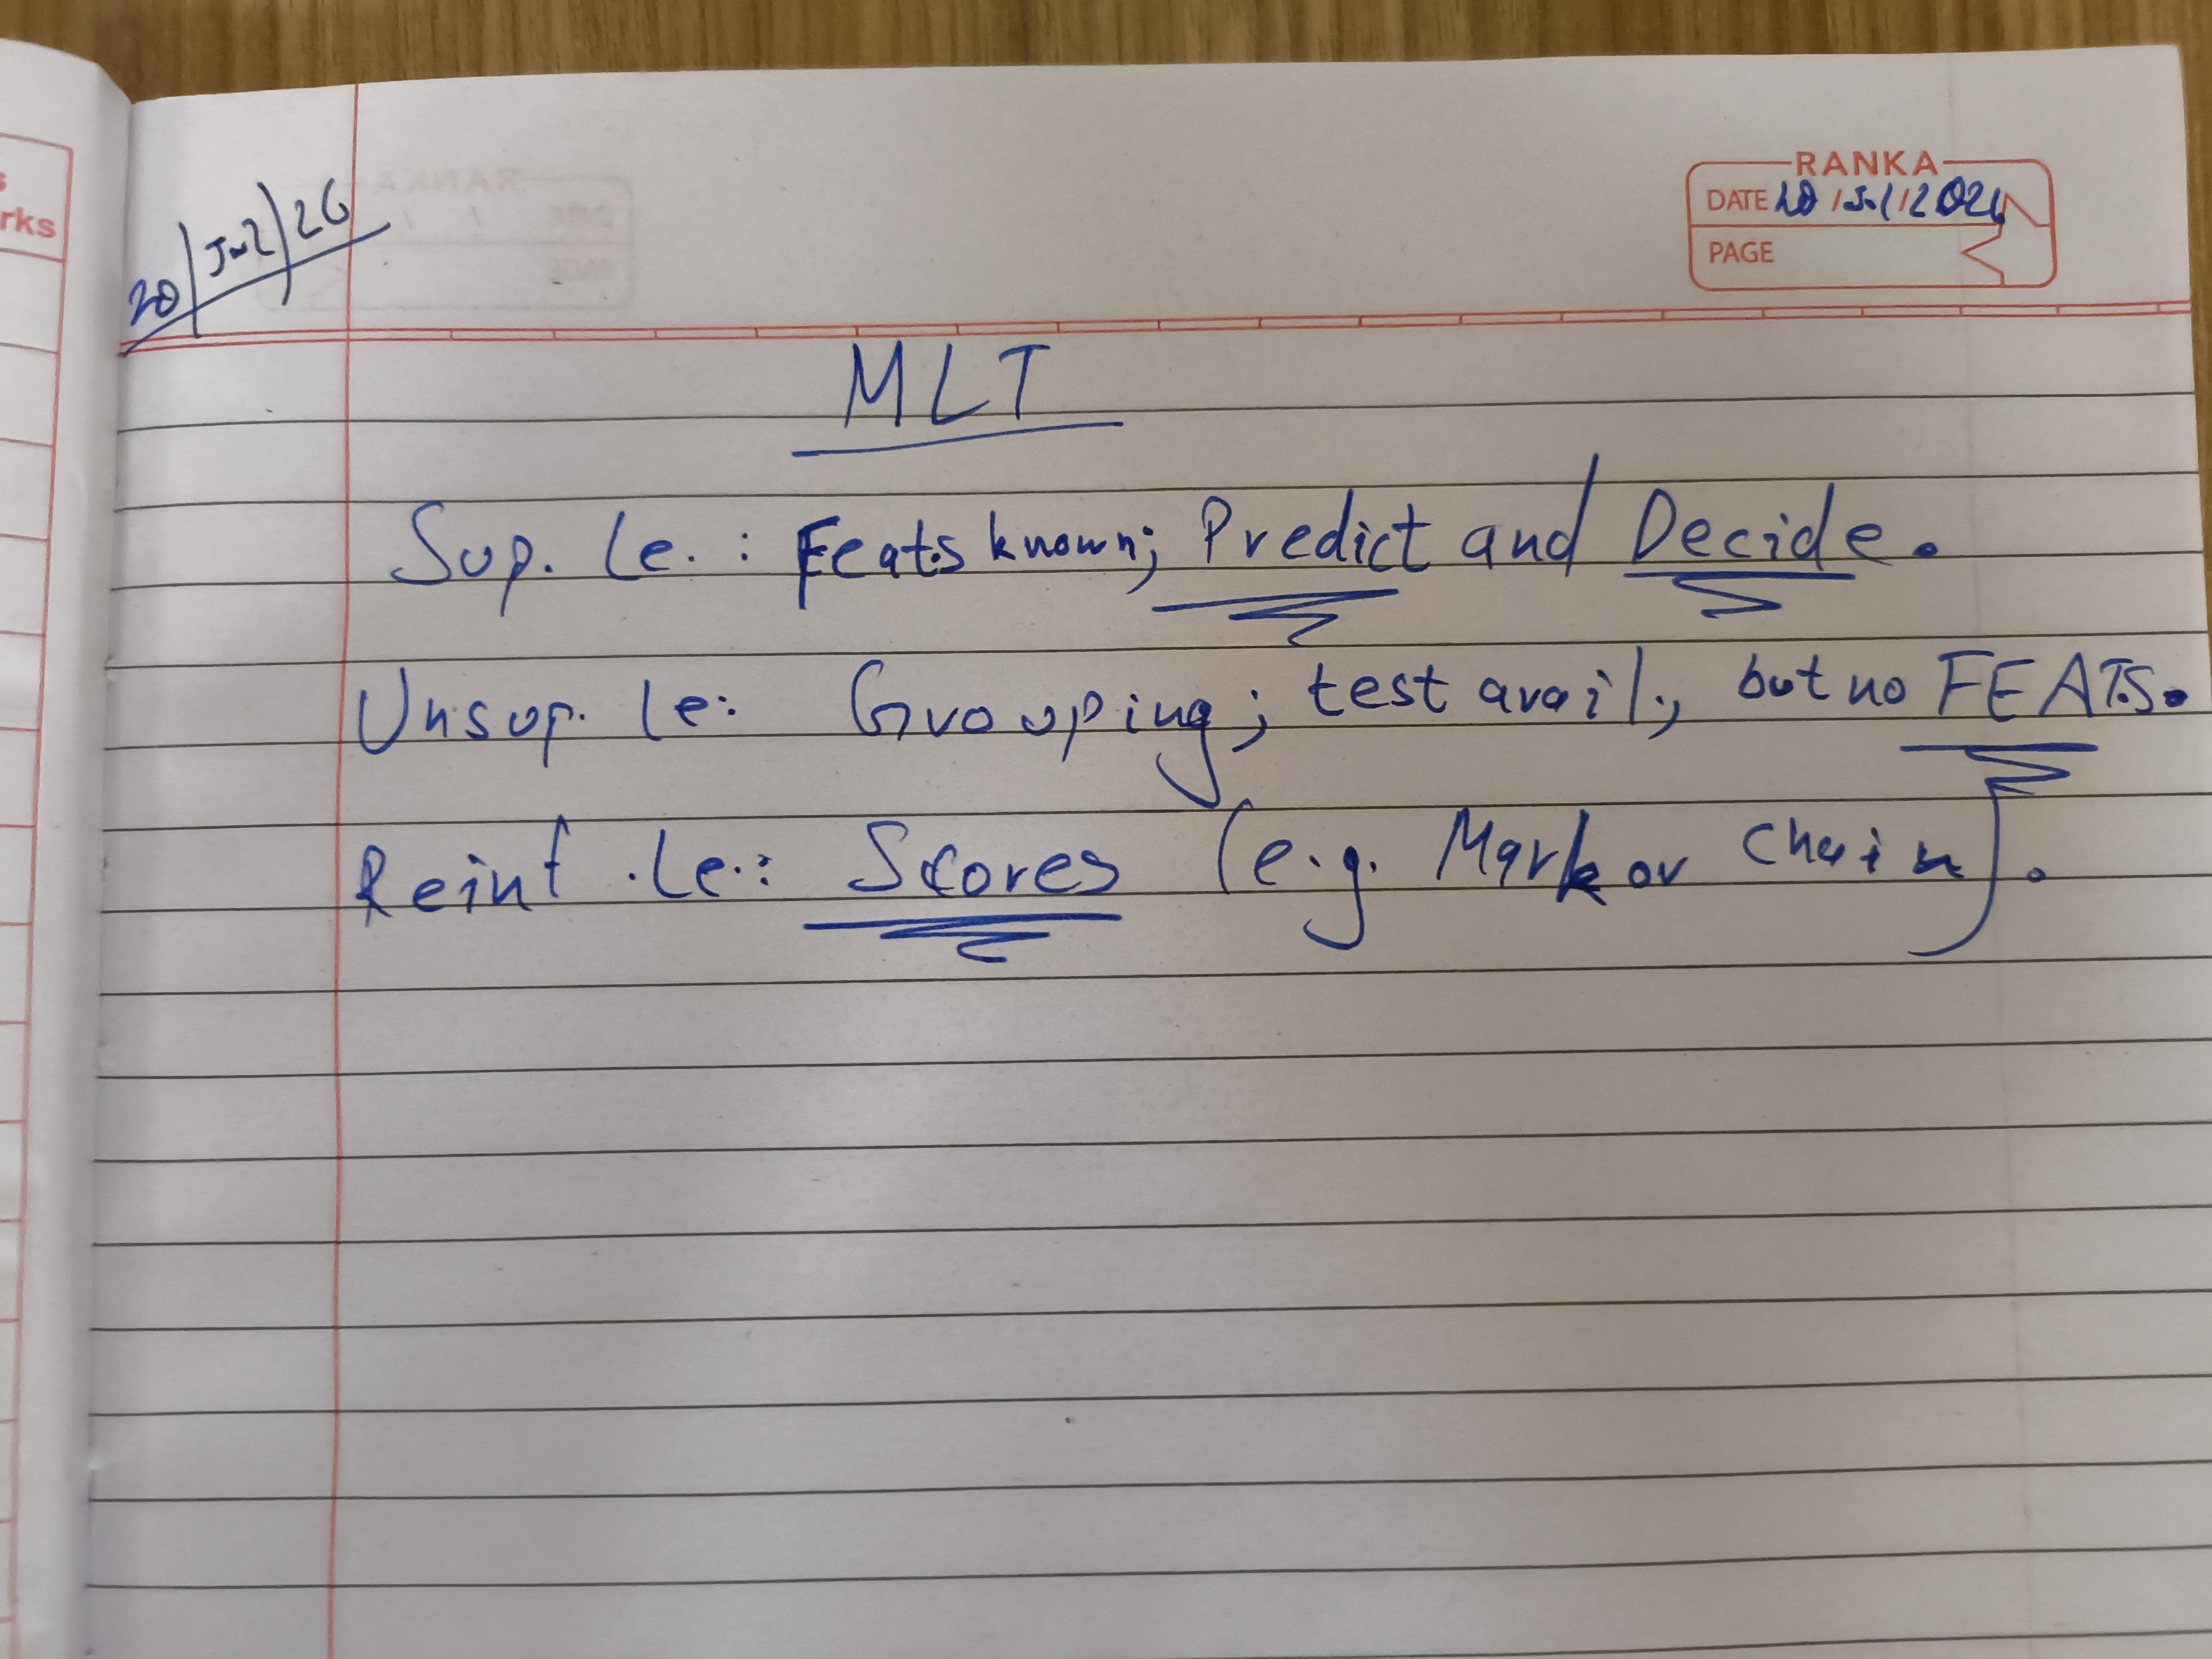 s
rks
20/Jul/26
RANKA
DATE 20/Jul/2026
PAGE
MLT
Sup. le. : Feats known; Predict and Decide.
Unsup. le: Grouping; test avail., but no FEATS.
Reinf. le.: Scores (e.g. Markov chain).